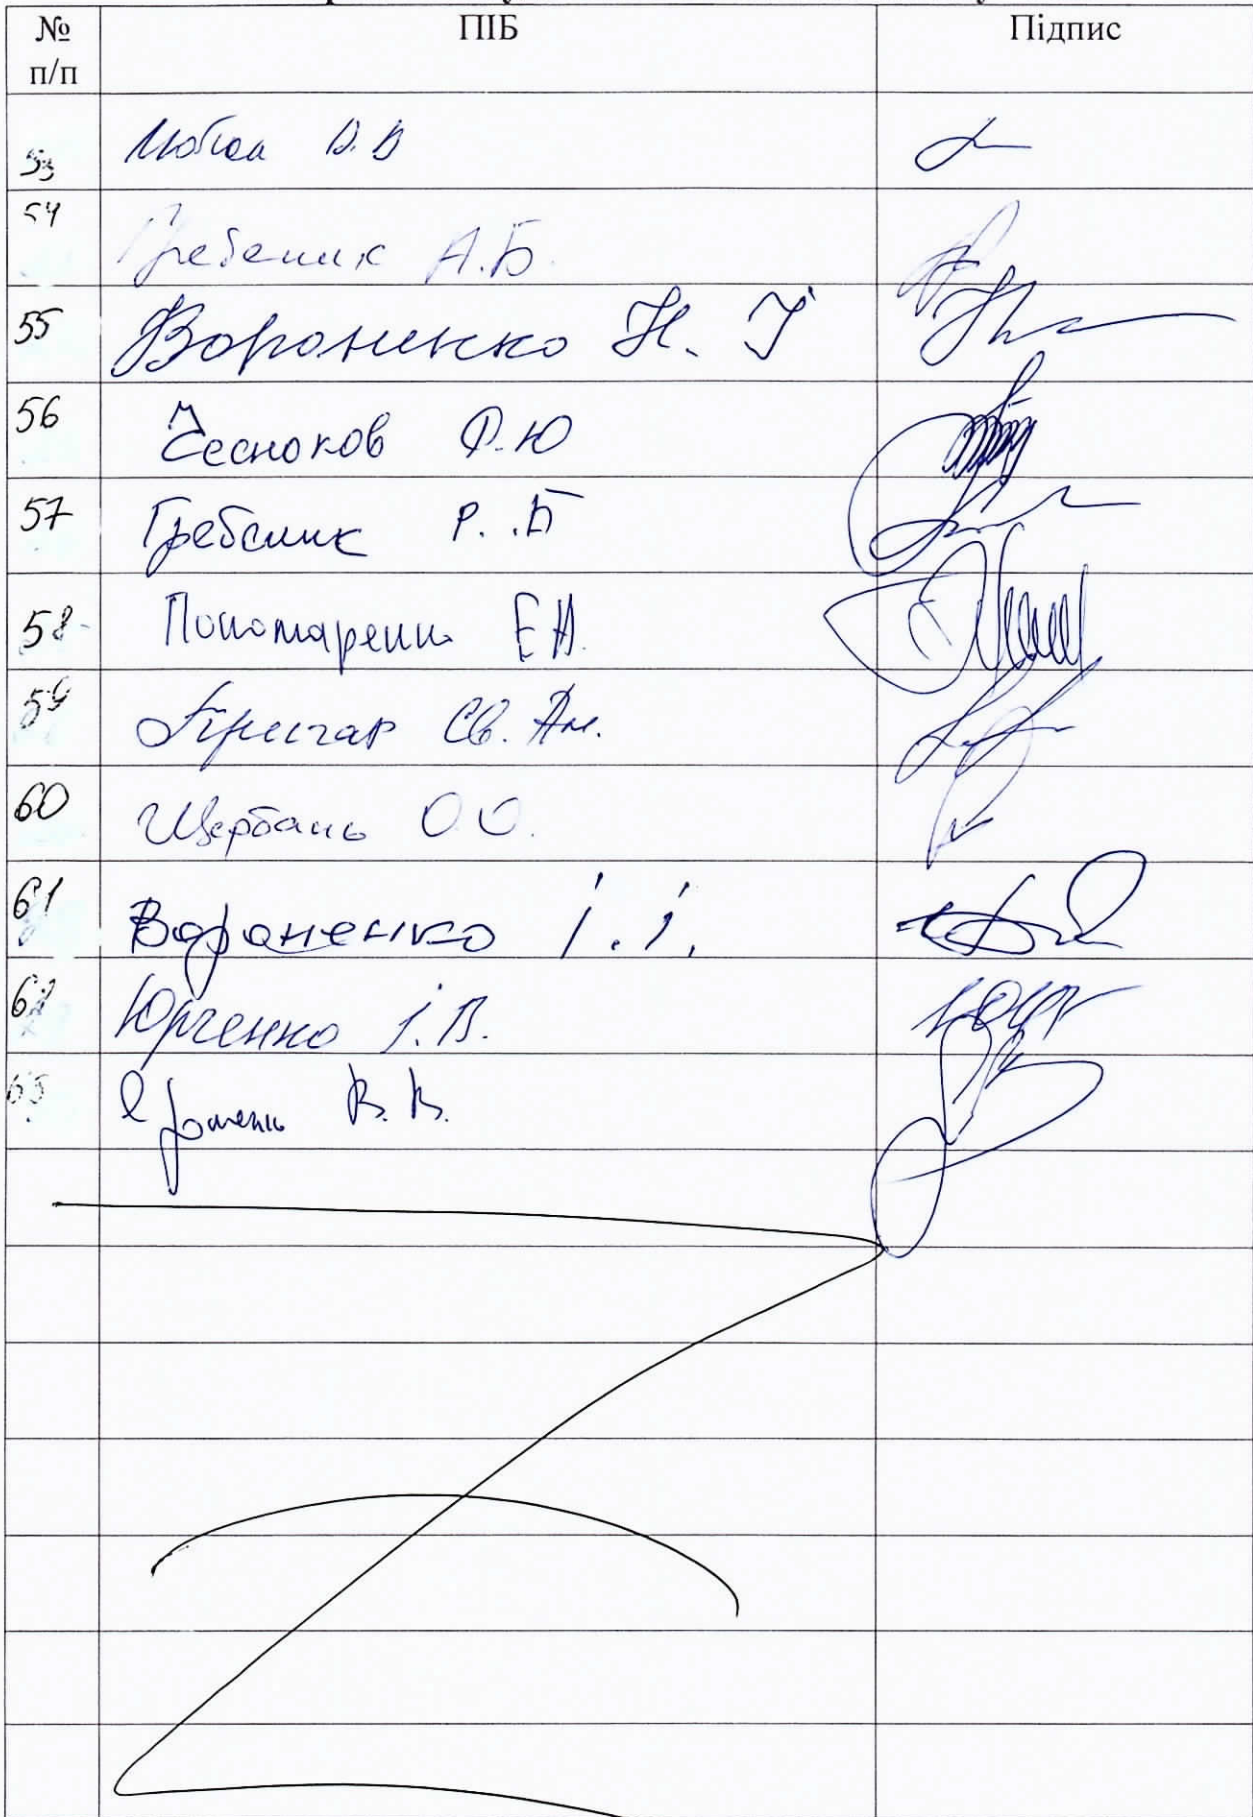 № п/п ПІБ Підпис
53 В.В
54 Гребеник А.Б.
55 Вороненко Н. І
56 Чесноков Ф.Ю
57 Гребеник Р. .Б
58 Пономаренко Е.Н.
59 Св. Ан.
60 Щербань О.О.
61 Вороненко І.І.
62 Юрченко І.В.
63 В.В.